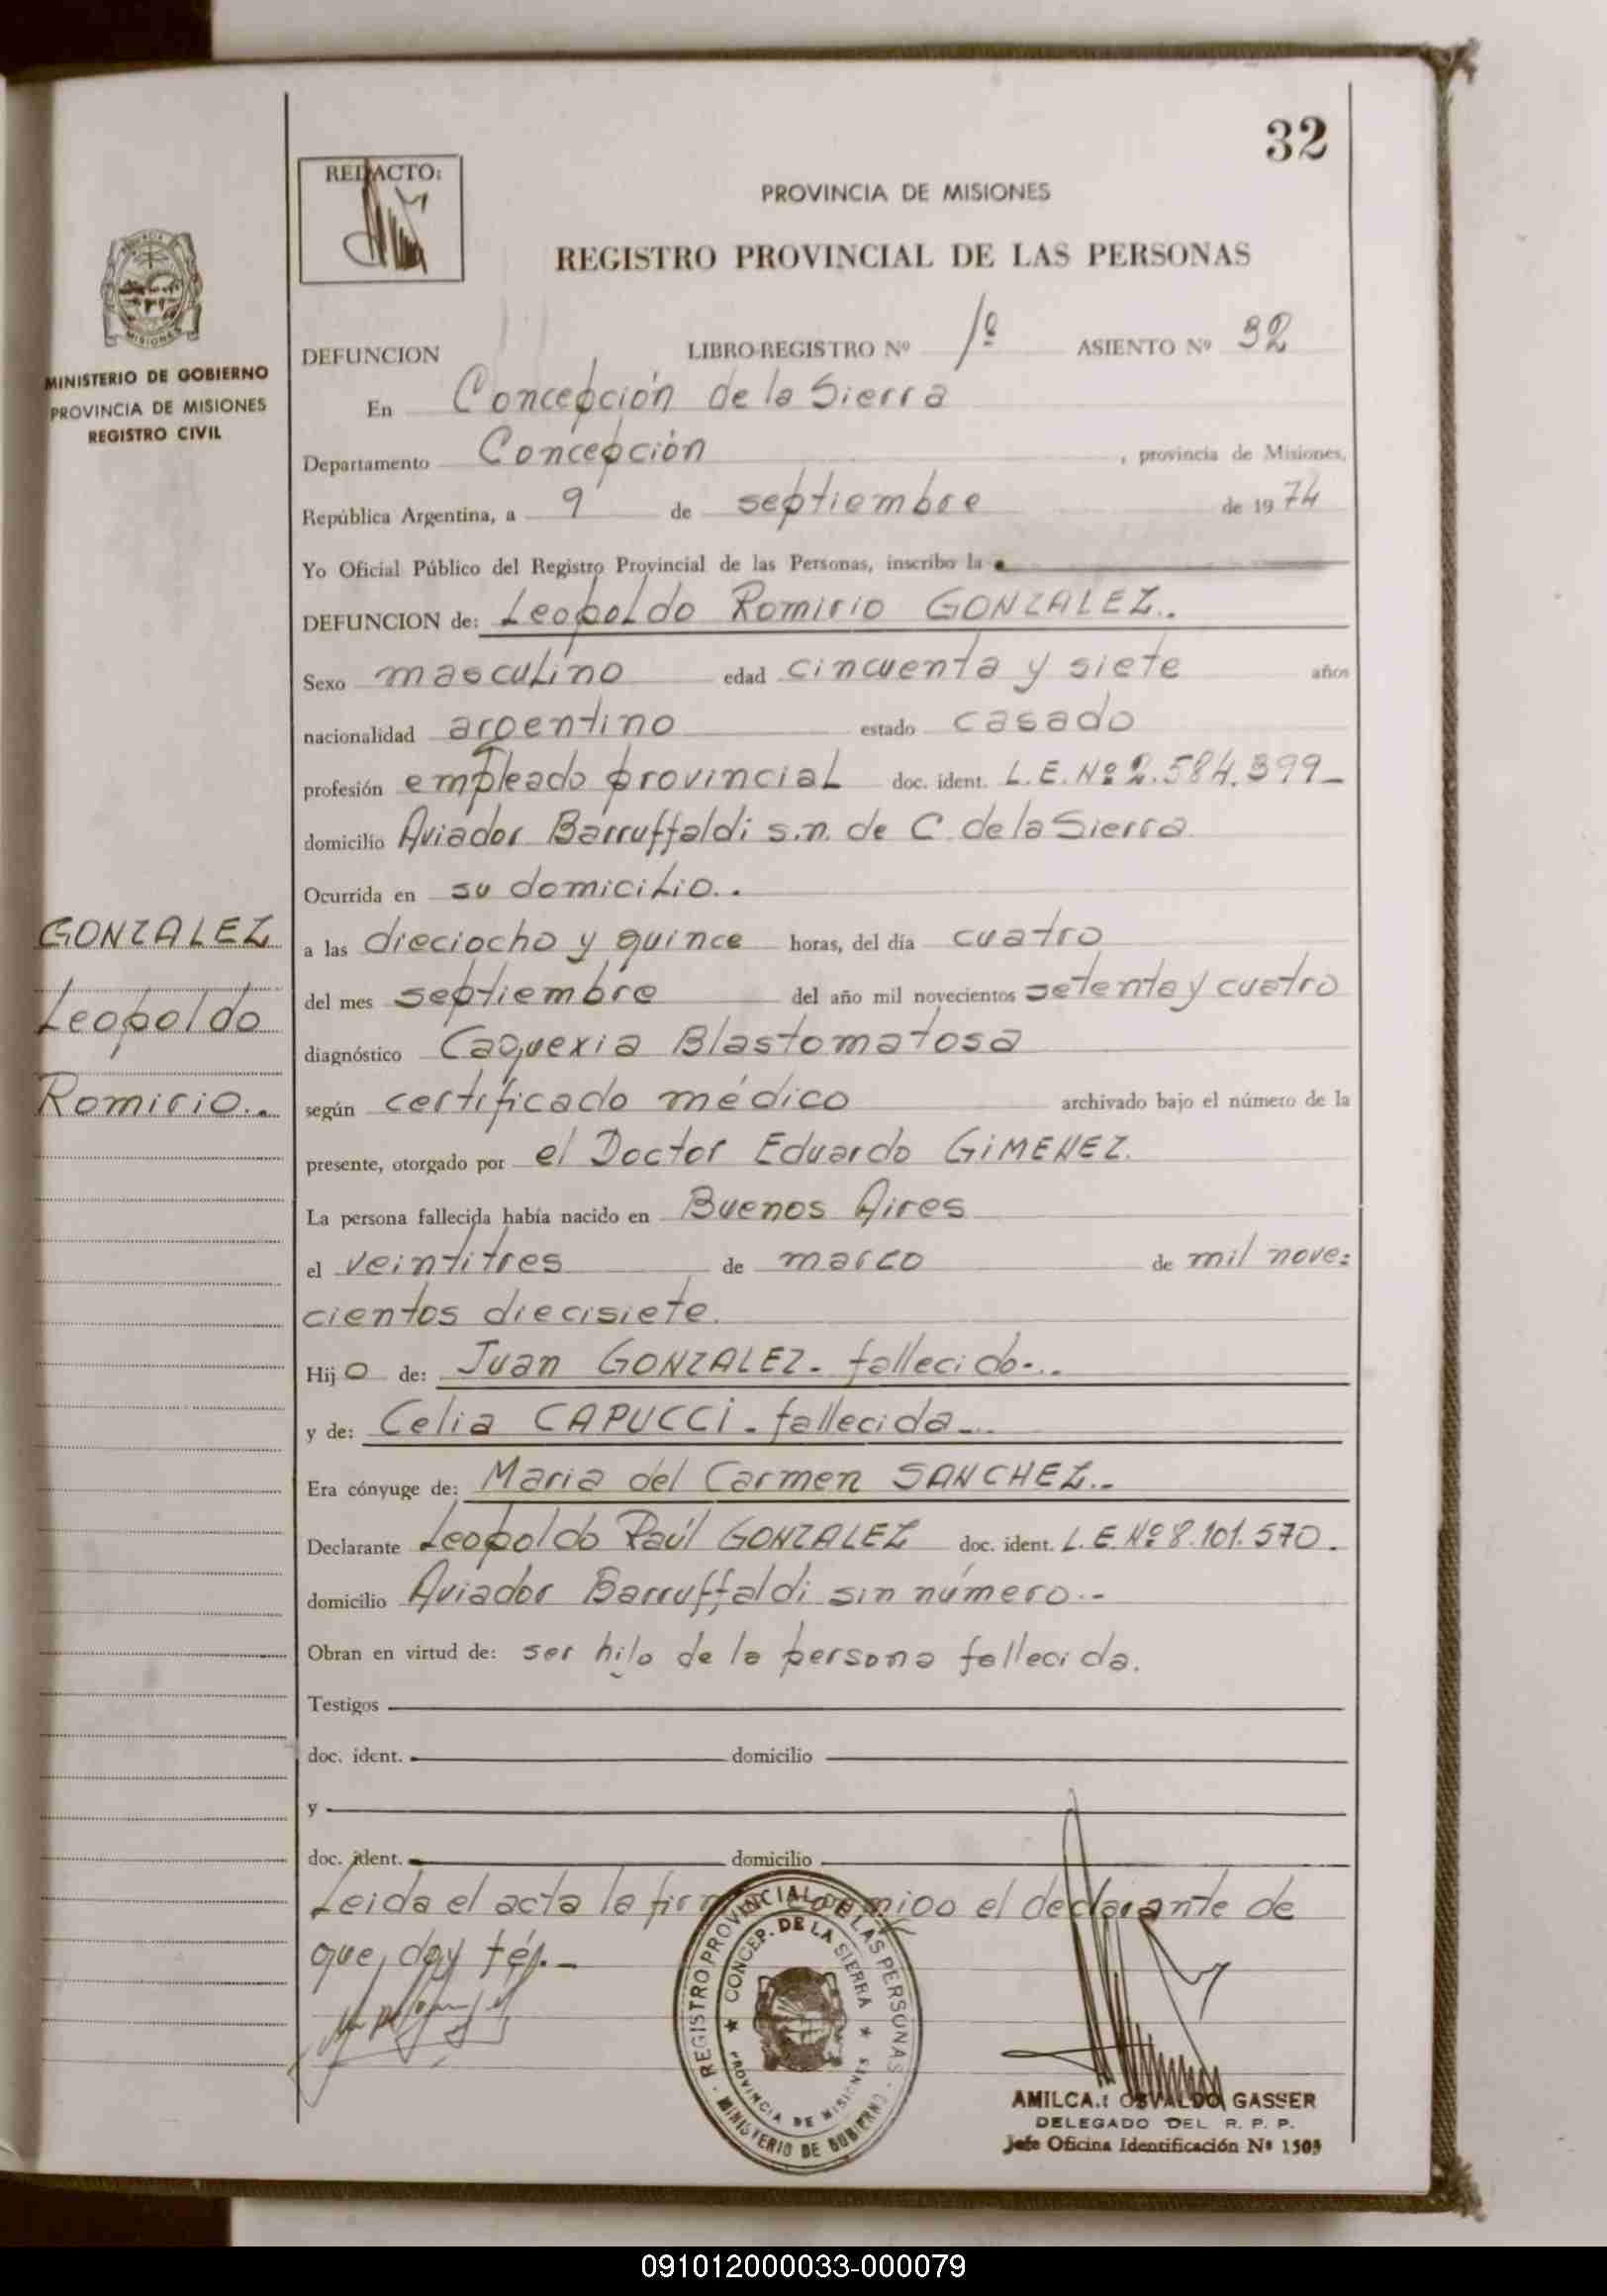 32
REDACTO:
PROVINCIA DE MISIONES
REGISTRO PROVINCIAL DE LAS PERSONAS
MISIONES
MINISTERIO DE GOBIERNO
PROVINCIA DE MISIONES
REGISTRO CIVIL
DEFUNCION LIBRO-REGISTRO Nº 1º ASIENTO Nº 32
En Concepción de la Sierra
Departamento Concepción , provincia de Misiones,
República Argentina, a 9 de septiembre de 1974
Yo Oficial Público del Registro Provincial de las Personas, inscribo la
DEFUNCION de: Leopoldo Romirio GONZALEZ..
Sexo masculino edad cincuenta y siete años
nacionalidad argentino estado casado
profesión empleado provincial doc. ident. L.E.Nº 2.584.399_
domicilio Aviador Barruffaldi s.n. de C. de la Sierra
Ocurrida en su domicilio..
a las dieciocho y quince horas, del día cuatro
del mes septiembre del año mil novecientos setenta y cuatro
diagnóstico Caquexia Blastomatosa
según certificado médico archivado bajo el número de la
presente, otorgado por el Doctor Eduardo GiMENEZ.
La persona fallecida había nacido en Buenos Aires
el veintitres de marzo de mil nove=
cientos diecisiete.
Hijo de: Juan GONZALEZ- fallecido-..
y de: Celia CAPUCCi - fallecida-..
Era cónyuge de: Maria del Carmen SANCHEZ.-
Declarante Leopoldo Raúl GONZALEZ doc. ident. L.E.Nº 8.101.570.
domicilio Aviador Barruffaldi sin número.-
Obran en virtud de: ser hijo de la persona fallecida.
Testigos
doc. ident. domicilio
y
doc. ident. domicilio
Leida el acta la firma conmigo el declarante de
que, doy fé.-
GONZALEZ
Leopoldo
Romirio..
REGISTRO PROVINCIAL DE LAS PERSONAS
MINISTERIO DE GOBIERNO
CONCEP. DE LA SIERRA
PROVINCIA DE MISIONES
AMILCAR OSVALDO GASSER
DELEGADO DEL R. P. P.
Jefe Oficina Identificación Nº 1505
091012000033-000079